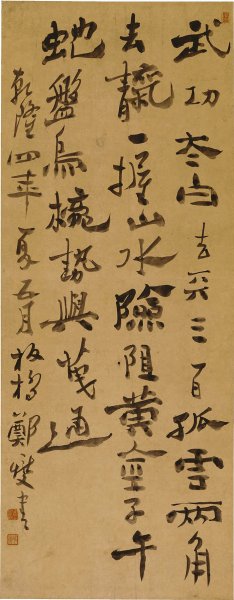 武功太白去天三百孤雲兩角
去靝一握山水險阻黃金子午
蛇盤烏櫳勢與天通
乾隆四年夏五月板橋鄭燮書